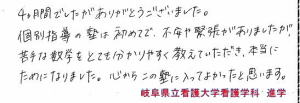 4ヶ月間でしたがありがとうございました。
個別指導の塾は初めてで、不安や緊張がありましたが
苦手な数学をとても分かりやすく教えていただき、本当に
ためになりました。心からこの塾に入ってよかったと思います。
岐阜県立看護大学看護学科 進学